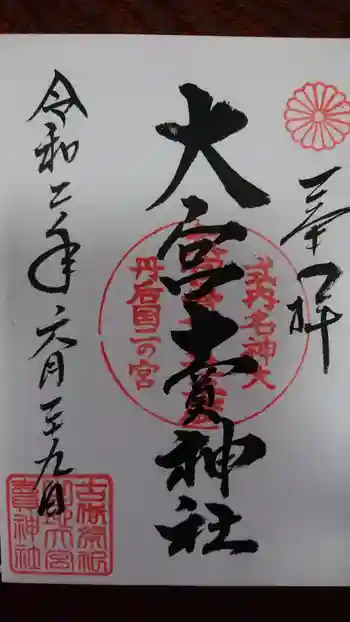 奉拝
式内名神大
大宮賣神社
丹后国二の宮
令和二年六月二十九日
賣神社